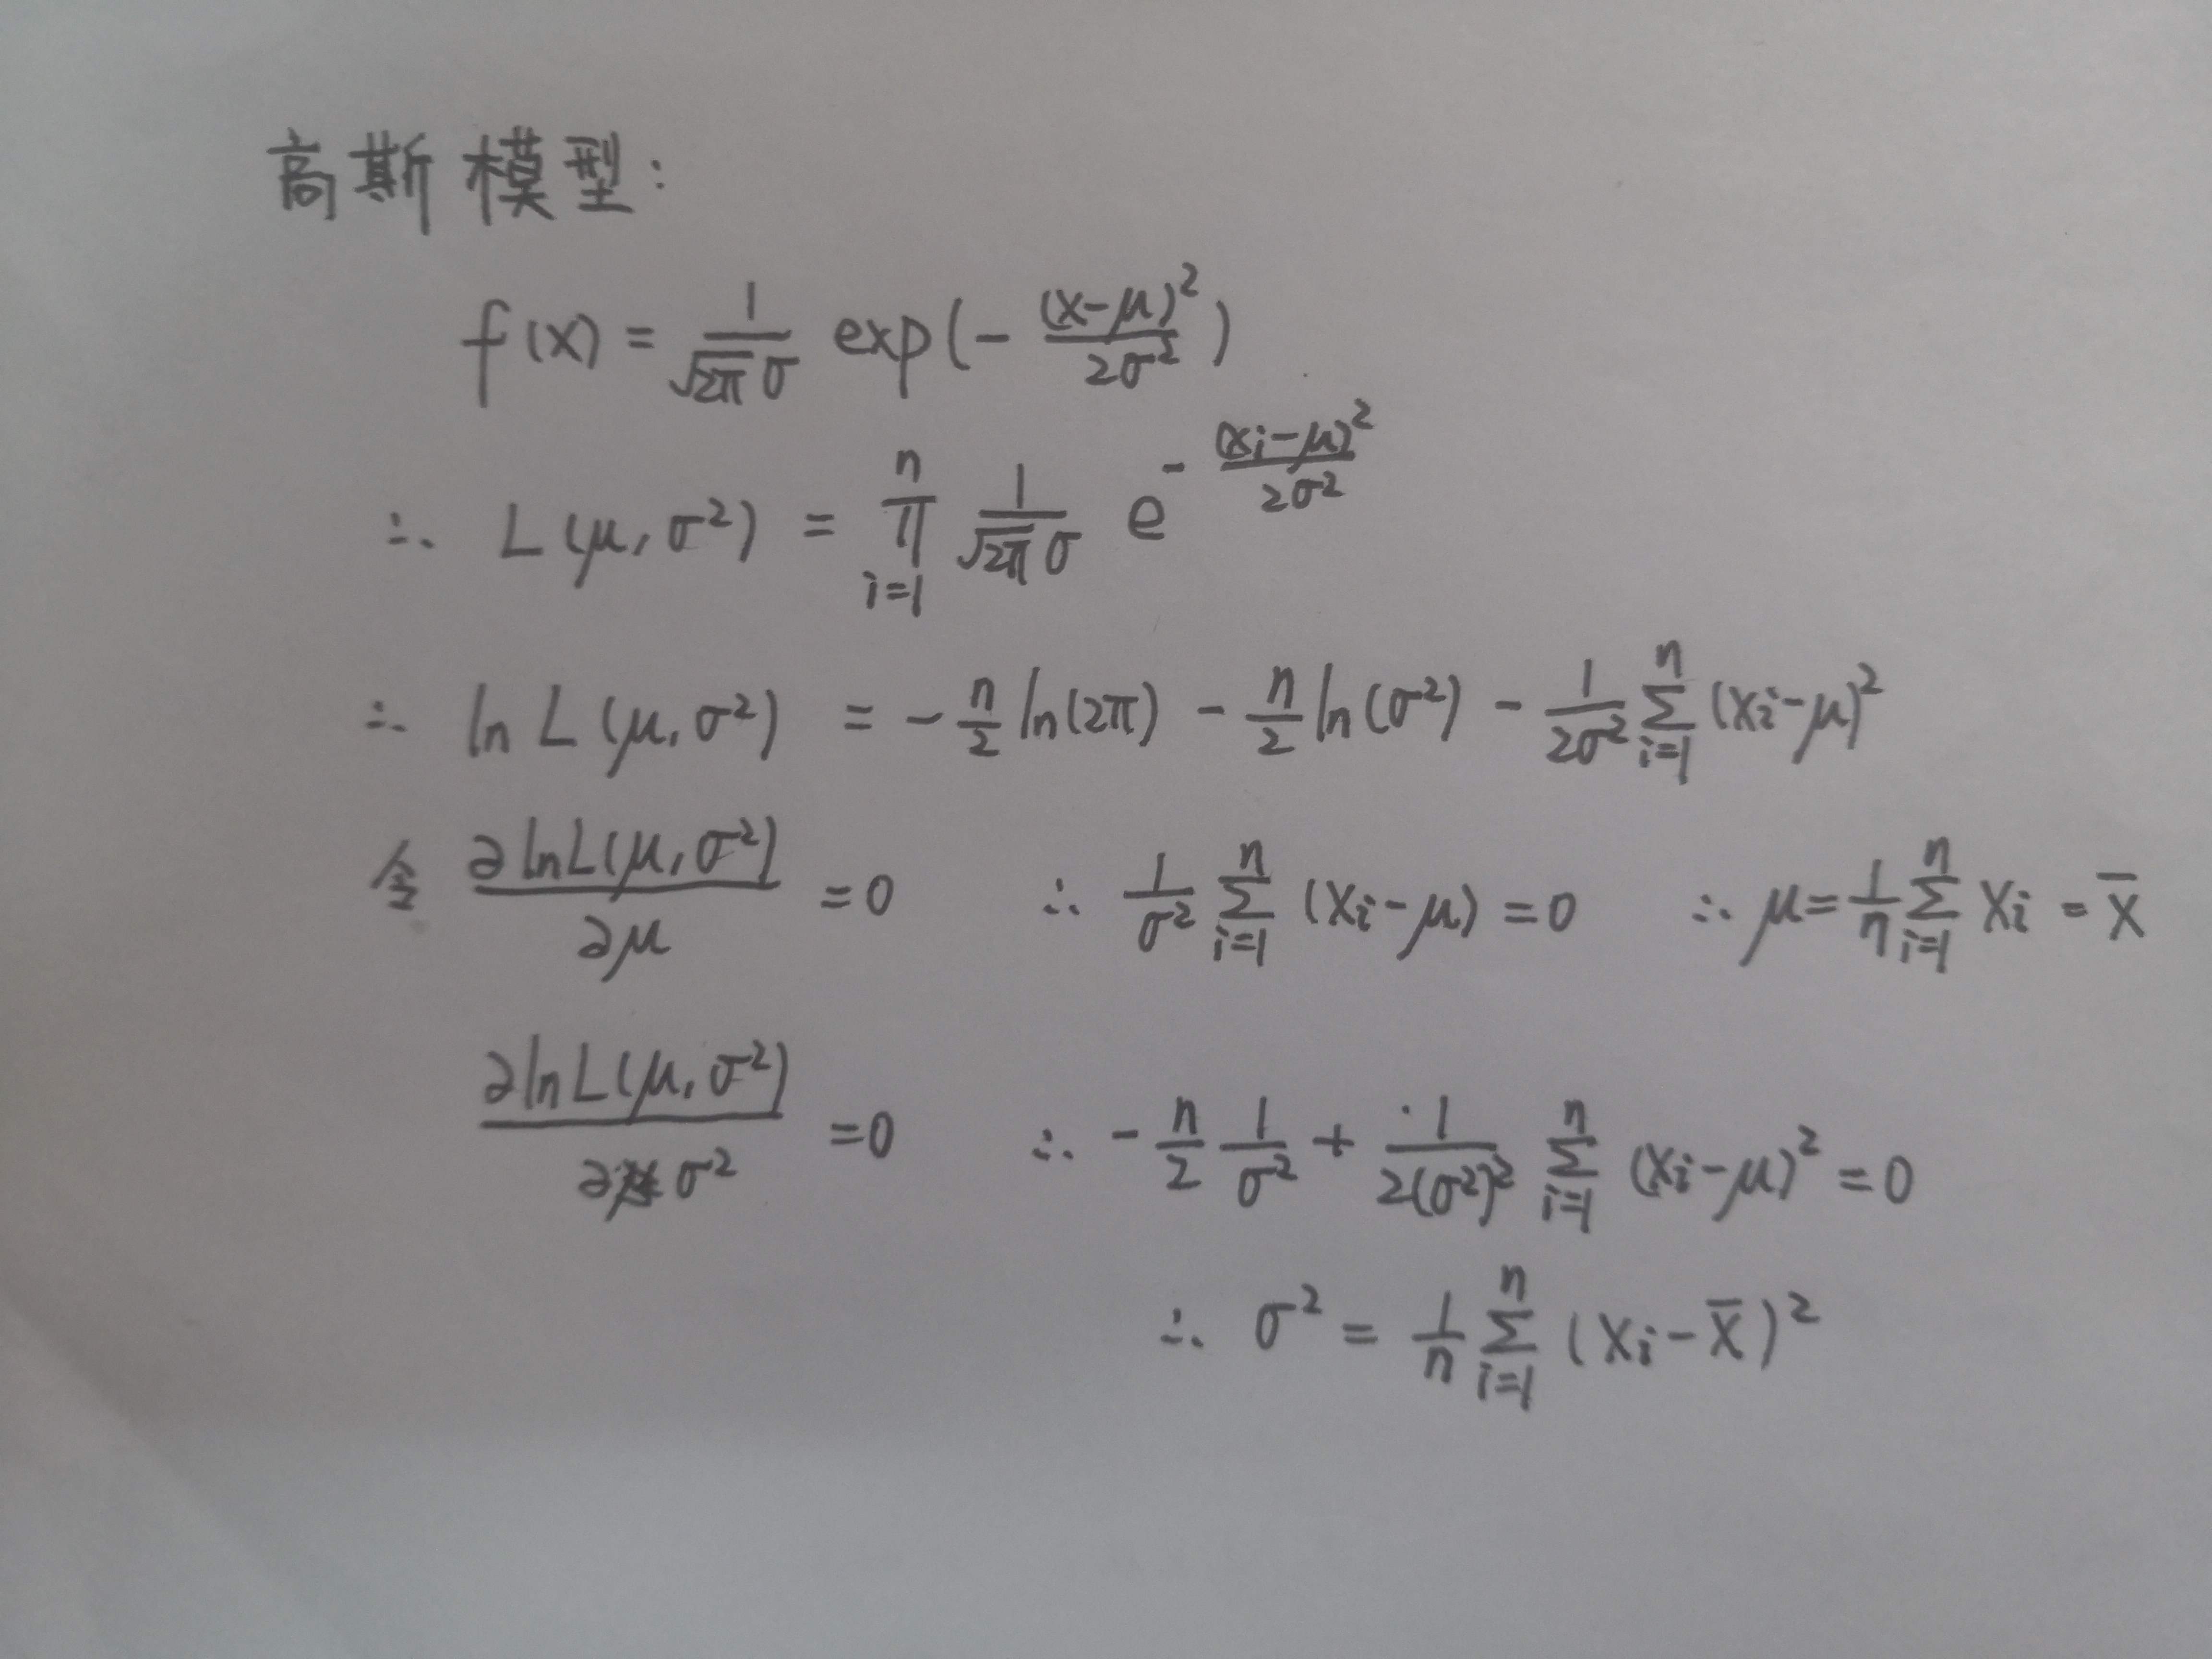 高斯模型:
f(x) = \frac{1}{\sqrt{2\pi}\sigma} exp(-\frac{(x-μ)^2}{2σ^2})
∴ L(μ, σ^2) = \prod_{i=1}^{n} \frac{1}{\sqrt{2\pi}\sigma} e^{-\frac{(x_i-μ)^2}{2σ^2}}
∴ ln L(μ, σ^2) = -\frac{n}{2} ln(2π) - \frac{n}{2} ln(σ^2) - \frac{1}{2σ^2} \sum_{i=1}^{n} (x_i-μ)^2
令 \frac{∂ln L(μ, σ^2)}{∂μ} = 0 ∴ \frac{1}{σ^2} \sum_{i=1}^{n} (x_i-μ) = 0 ∴ μ = \frac{1}{n} \sum_{i=1}^{n} x_i = \overline{x}
\frac{∂ln L(μ, σ^2)}{∂σ^2} = 0 ∴ -\frac{n}{2} \frac{1}{σ^2} + \frac{1}{2(σ^2)^2} \sum_{i=1}^{n} (x_i-μ)^2 = 0
∴ σ^2 = \frac{1}{n} \sum_{i=1}^{n} (x_i-\overline{x})^2